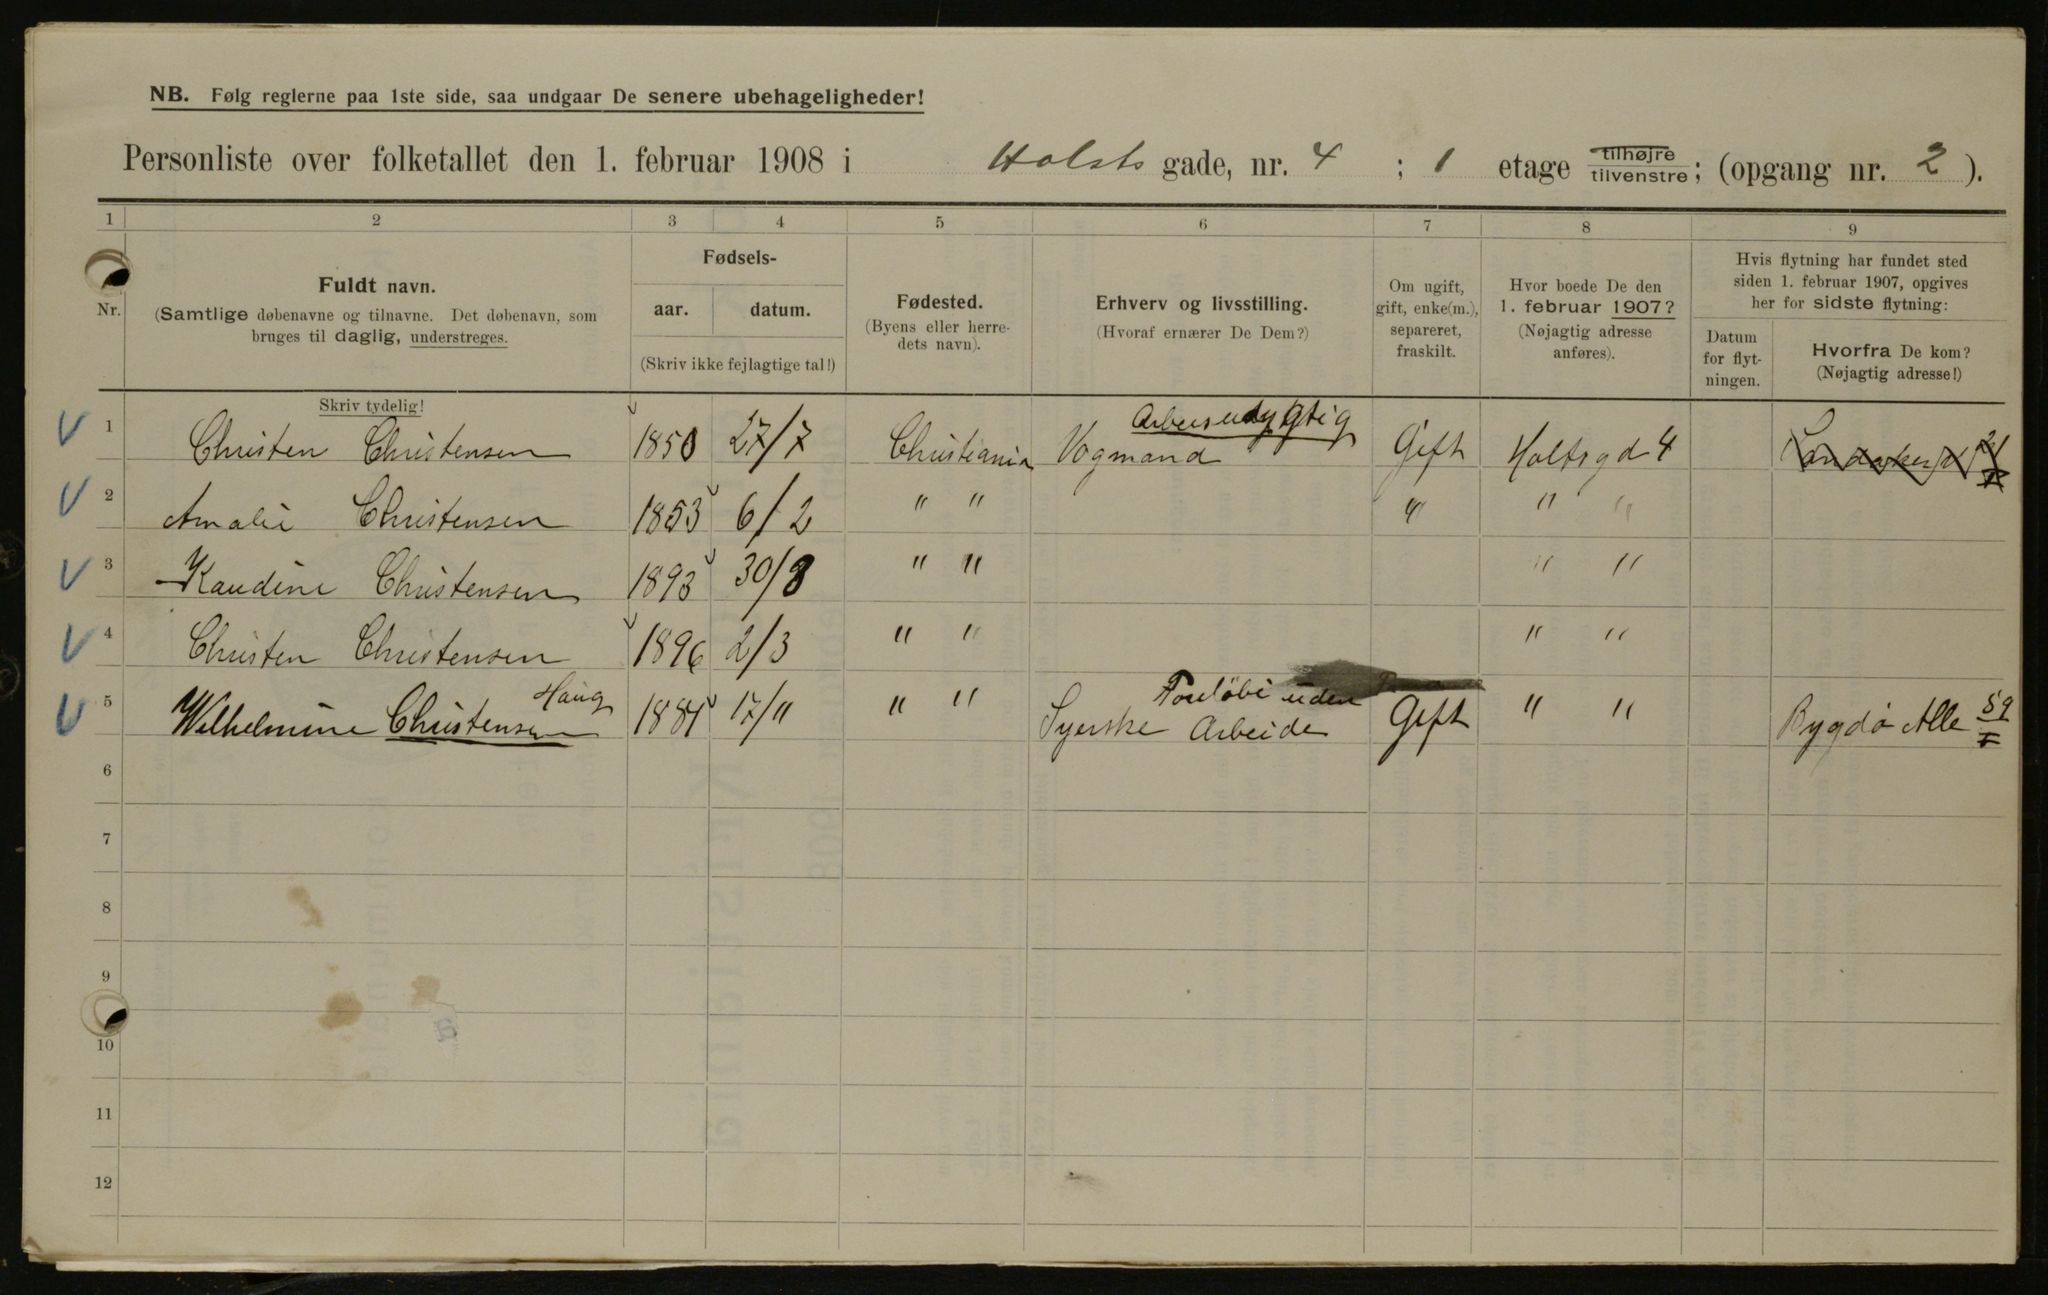 NB. Følg reglerne paa 1ste side, saa undgaar De senere ubehageligheder!
Personliste over folketallet den 1. februar 1908 i Holsts gade, nr. 4 ; 1 etage tilhøjre tilvenstre; (opgang nr. 2 ).
1 2 3 4 5 6 7 8 9
Nr.
Fuldt navn.
(Samtlige døbenavne og tilnavne. Det døbenavn, som
bruges til daglig, understreges.
Skriv tydelig!
Fødsels-
aar. datum.
(Skriv ikke fejlagtige tal!)
Fødested.
(Byens eller herre-
dets navn).
Erhverv og livsstilling.
(Hvoraf ernærer De Dem?)
Om ugift,
gift, enke(m.),
separeret,
fraskilt.
Hvor boede De den
1. februar 1907?
(Nøjagtig adresse
anføres).
Hvis flytning har fundet sted
siden 1. februar 1907, opgives
her for sidste flytning:
Datum
for flyt-
ningen.
Hvorfra De kom?
(Nøjagtig adresse!)
Arbeisudygtig
1 Christen Christensen 1850 27/7 Christiania Vogmand Gift Holtsgd 4
2 Amalie Christensen 1853 6/2 " " " " "
3 Kaudine Christensen 1893 30/8 " " " "
4 Christen Christensen 1896 2/3 " " " "
Haug Foreløbi uden
5 Wilhelmine Christensen 1881 17/11 " " Syerske Arbeide Gift " " Bygdø Alle 59 I
6
7
8
9
10
11
12